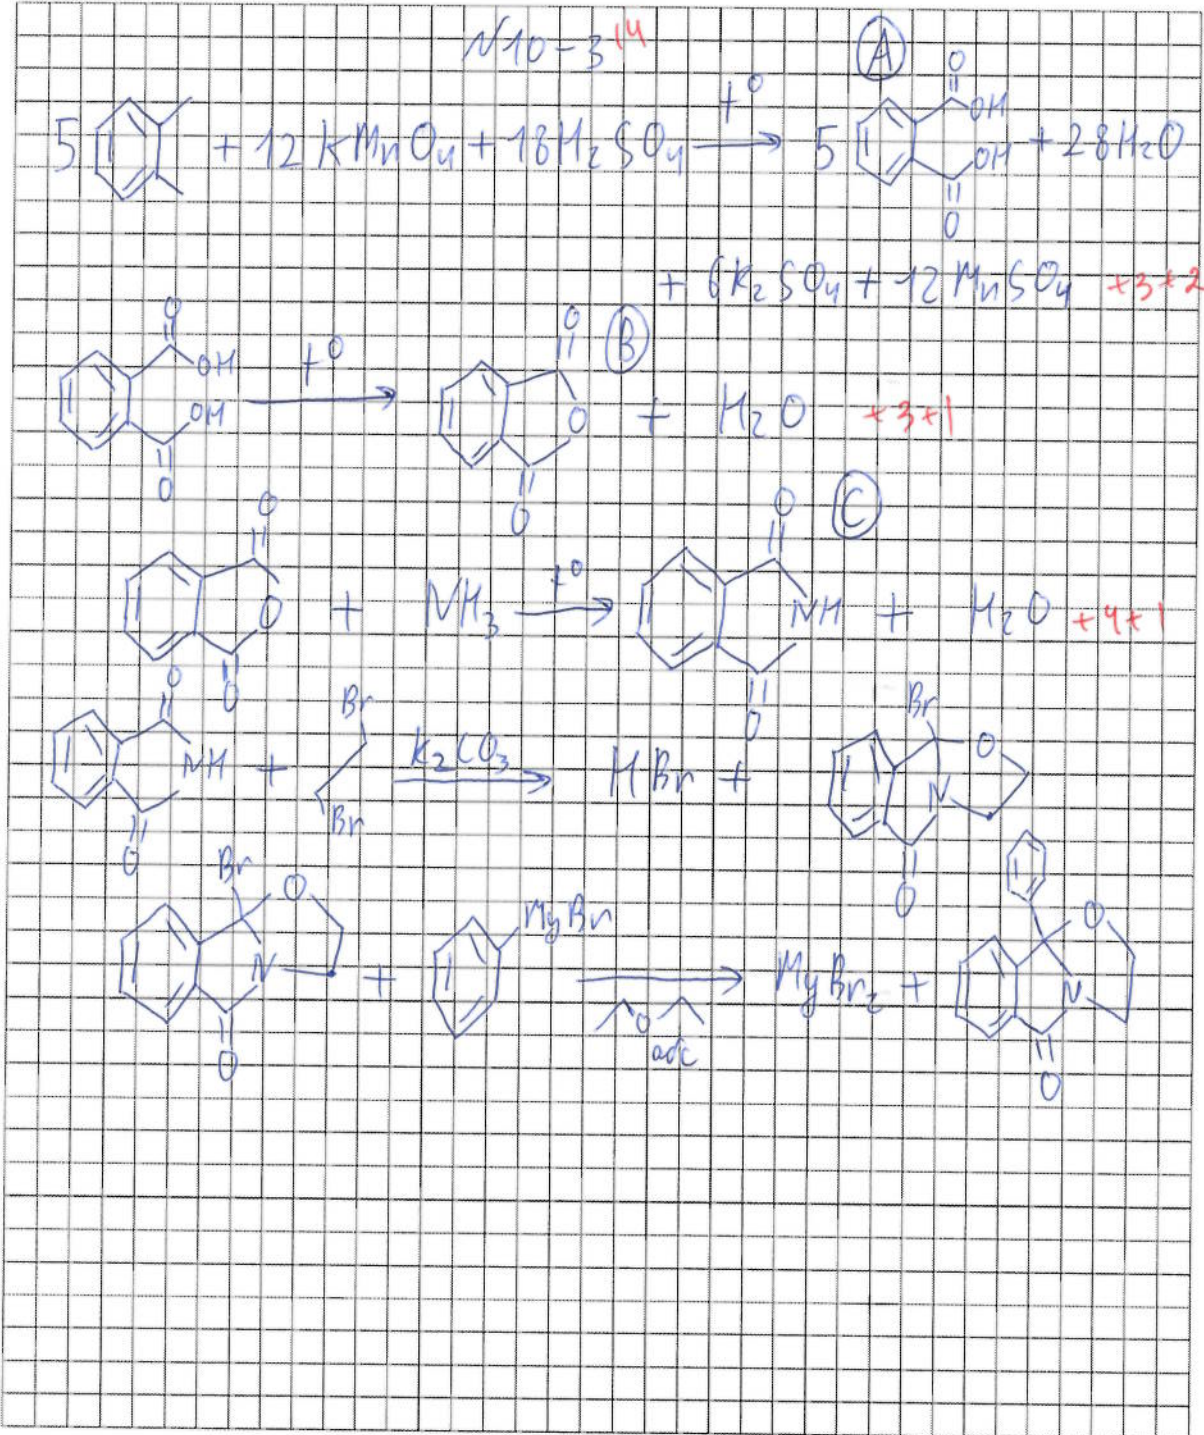 N10-3 14
A
5 + 12 KMnO4 + 18H2SO4 t° → 5 O OH OH O + 28H2O
+ 6K2SO4 + 12 MnSO4 +3+2
O OH OH O t° → O O O B + H2O +3+1
O O O + NH3 t° → O NH O C + H2O +4+1
O NH O + Br Br K2CO3 → HBr + Br O N O
Br O N O + MgBr → O MgBr2 + O N O